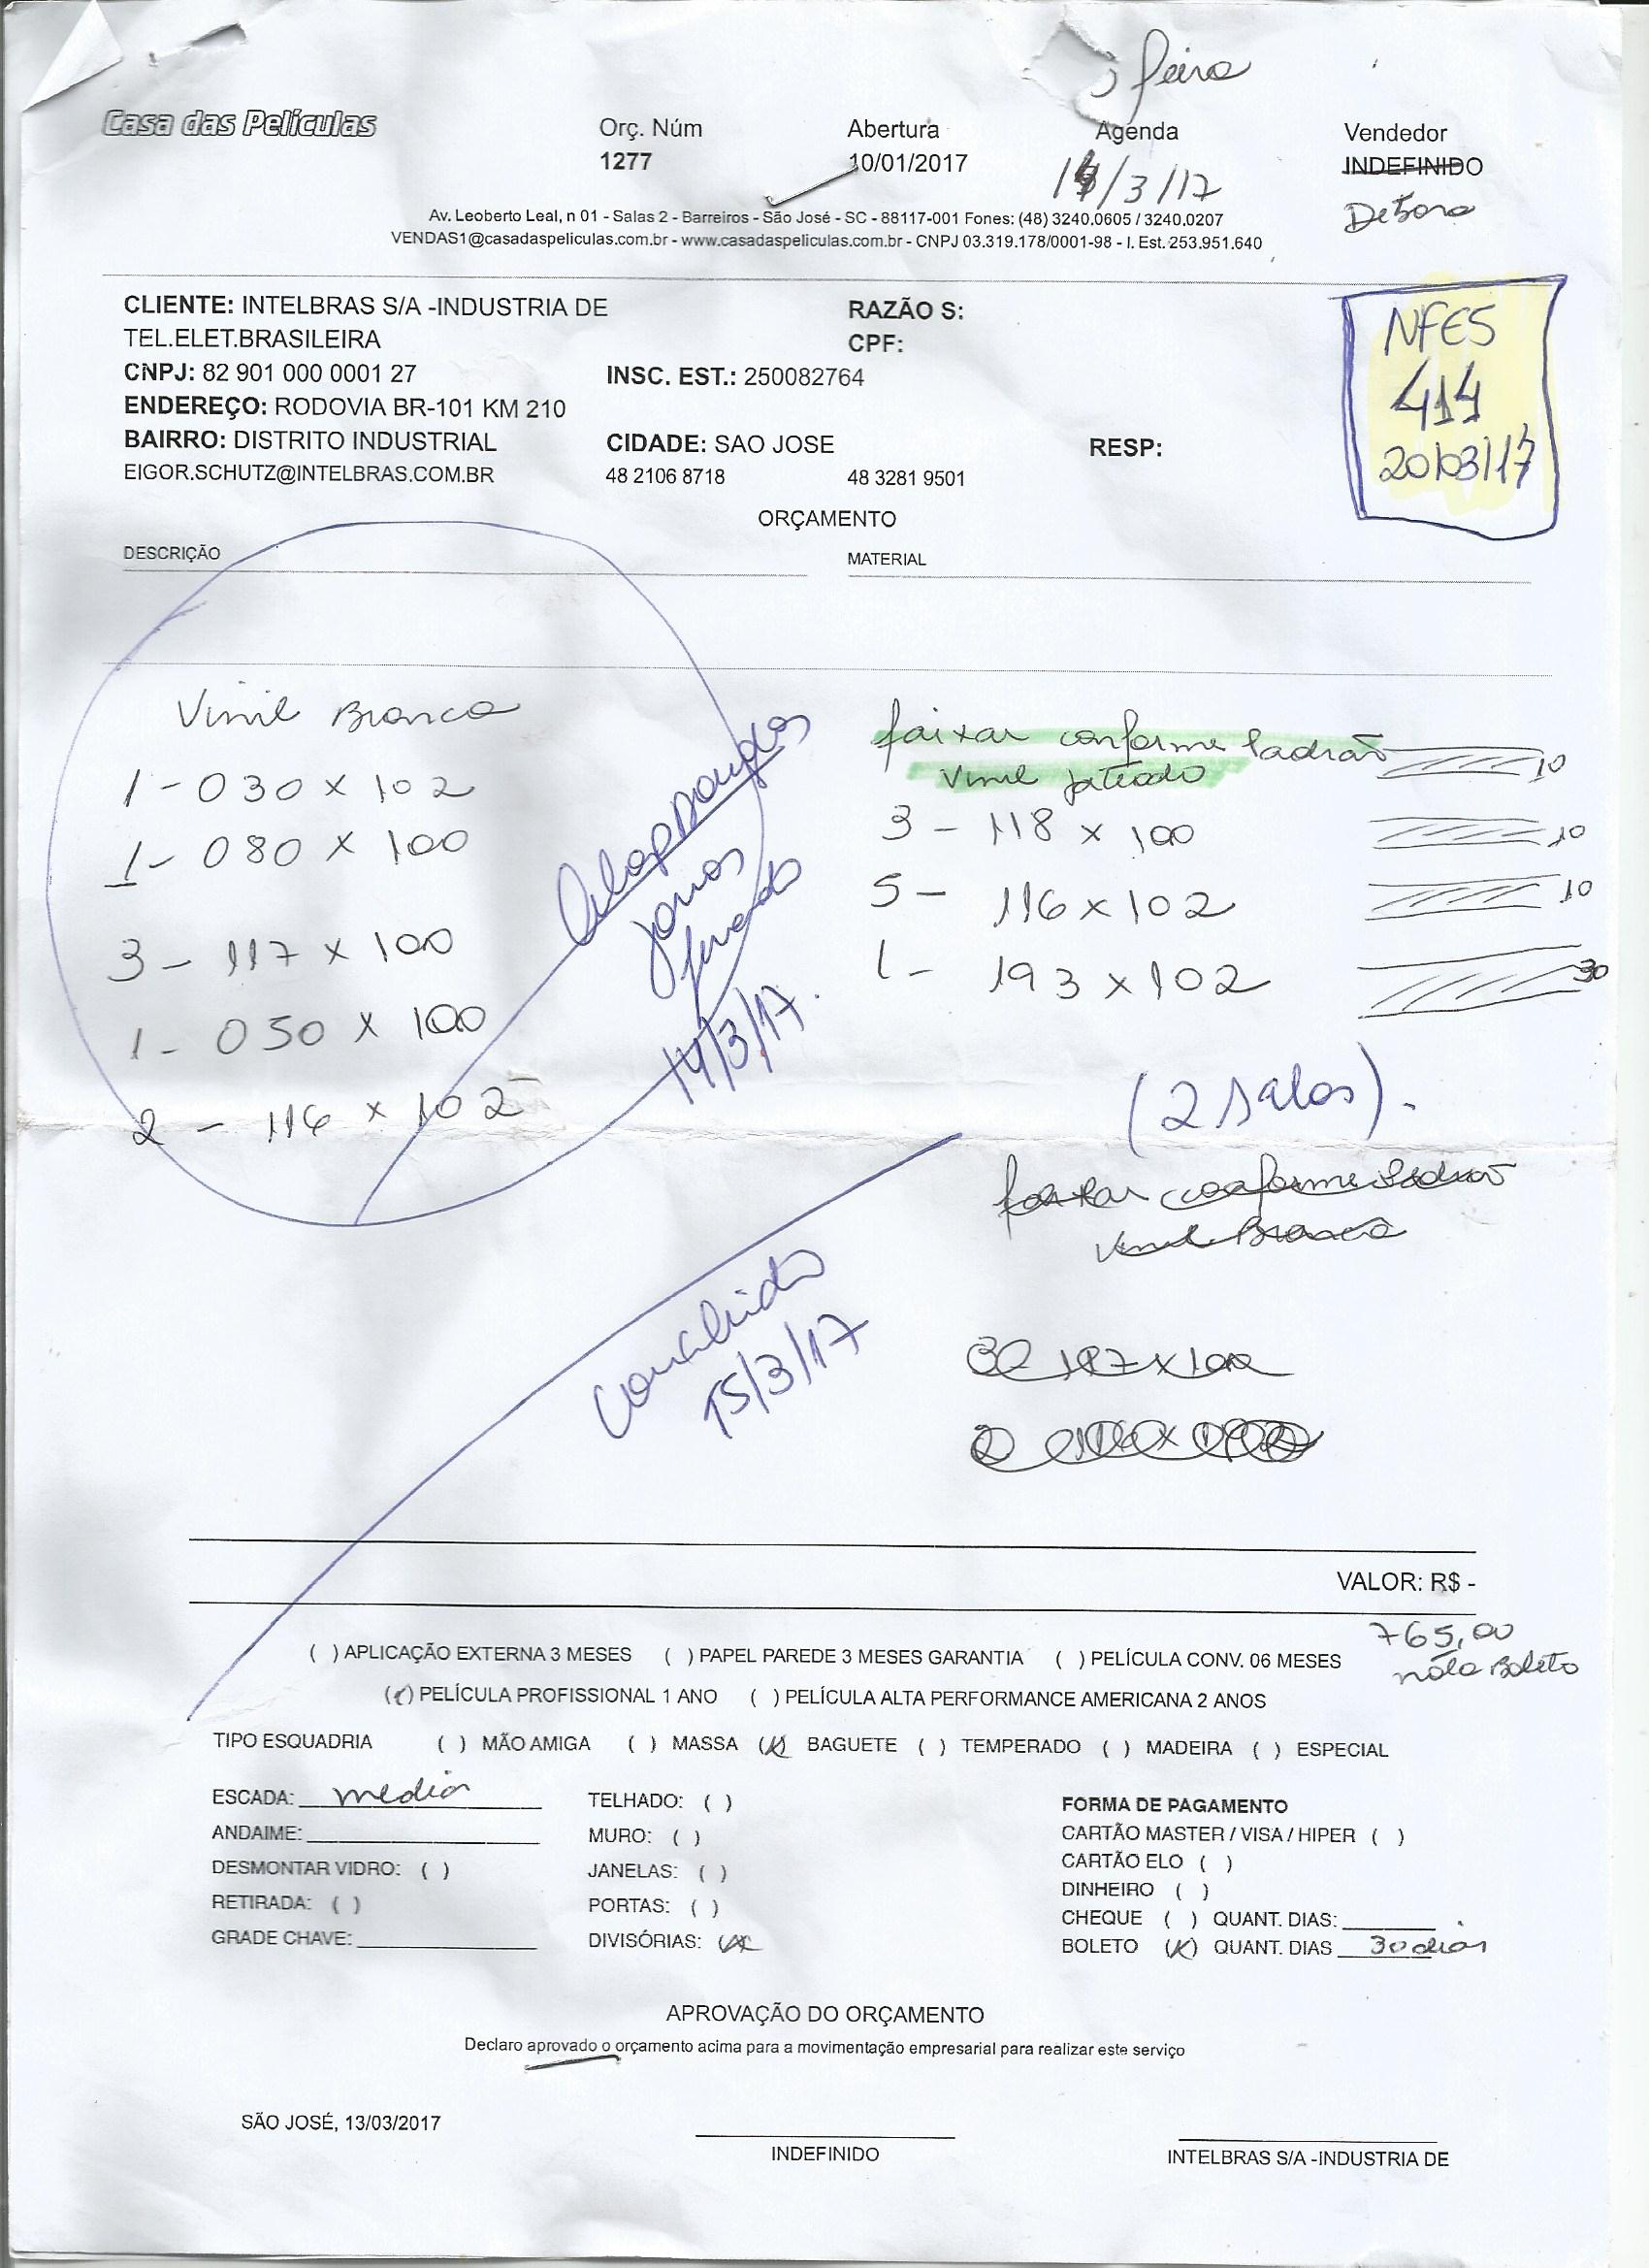 feira
Casa das Películas
Orç. Núm
Abertura
Agenda
Vendedor
1277
10/01/2017
14/3/17
INDEFINIDO
Debora
Av. Leoberto Leal, n 01 - Salas 2 - Barreiros - São José - SC - 88117-001 Fones: (48) 3240.0605 / 3240.0207
VENDAS1@casadaspeliculas.com.br - www.casadaspeliculas.com.br - CNPJ 03.319.178/0001-98 - I. Est. 253.951.640
CLIENTE: INTELBRAS S/A -INDUSTRIA DE
TEL.ELET.BRASILEIRA
RAZÃO S:
CPF:
CNPJ: 82 901 000 0001 27
INSC. EST.: 250082764
ENDEREÇO: RODOVIA BR-101 KM 210
BAIRRO: DISTRITO INDUSTRIAL
CIDADE: SAO JOSE
RESP:
EIGOR.SCHUTZ@INTELBRAS.COM.BR
48 2106 8718
48 3281 9501
NFES
414
20/03/17
ORÇAMENTO
DESCRIÇÃO
MATERIAL
Vinil Branco
1 - 030 x 102
1 - 080 x 100
3 - 117 x 100
1 - 050 x 100
2 - 116 x 102
14/3/17.
faixar conforme Padrão
vinil jateado
10
3 - 118 x 100
10
5 - 116 x 102
10
1 - 193 x 102
30
(2 salas).
faixar conforme Padrão
Vinil Branco
concluido
15/3/17
VALOR: R$ -
765,00
nota Boleto
( ) APLICAÇÃO EXTERNA 3 MESES ( ) PAPEL PAREDE 3 MESES GARANTIA ( ) PELÍCULA CONV. 06 MESES
(x) PELÍCULA PROFISSIONAL 1 ANO ( ) PELÍCULA ALTA PERFORMANCE AMERICANA 2 ANOS
TIPO ESQUADRIA ( ) MÃO AMIGA ( ) MASSA (x) BAGUETE ( ) TEMPERADO ( ) MADEIRA ( ) ESPECIAL
ESCADA: media
ANDAIME:
DESMONTAR VIDRO: ( )
RETIRADA: ( )
GRADE CHAVE:
TELHADO: ( )
MURO: ( )
JANELAS: ( )
PORTAS: ( )
DIVISÓRIAS: (x)
FORMA DE PAGAMENTO
CARTÃO MASTER / VISA / HIPER ( )
CARTÃO ELO ( )
DINHEIRO ( )
CHEQUE ( ) QUANT. DIAS:
BOLETO (x) QUANT. DIAS 30 dias
APROVAÇÃO DO ORÇAMENTO
Declaro aprovado o orçamento acima para a movimentação empresarial para realizar este serviço
SÃO JOSÉ, 13/03/2017
INDEFINIDO
INTELBRAS S/A -INDUSTRIA DE